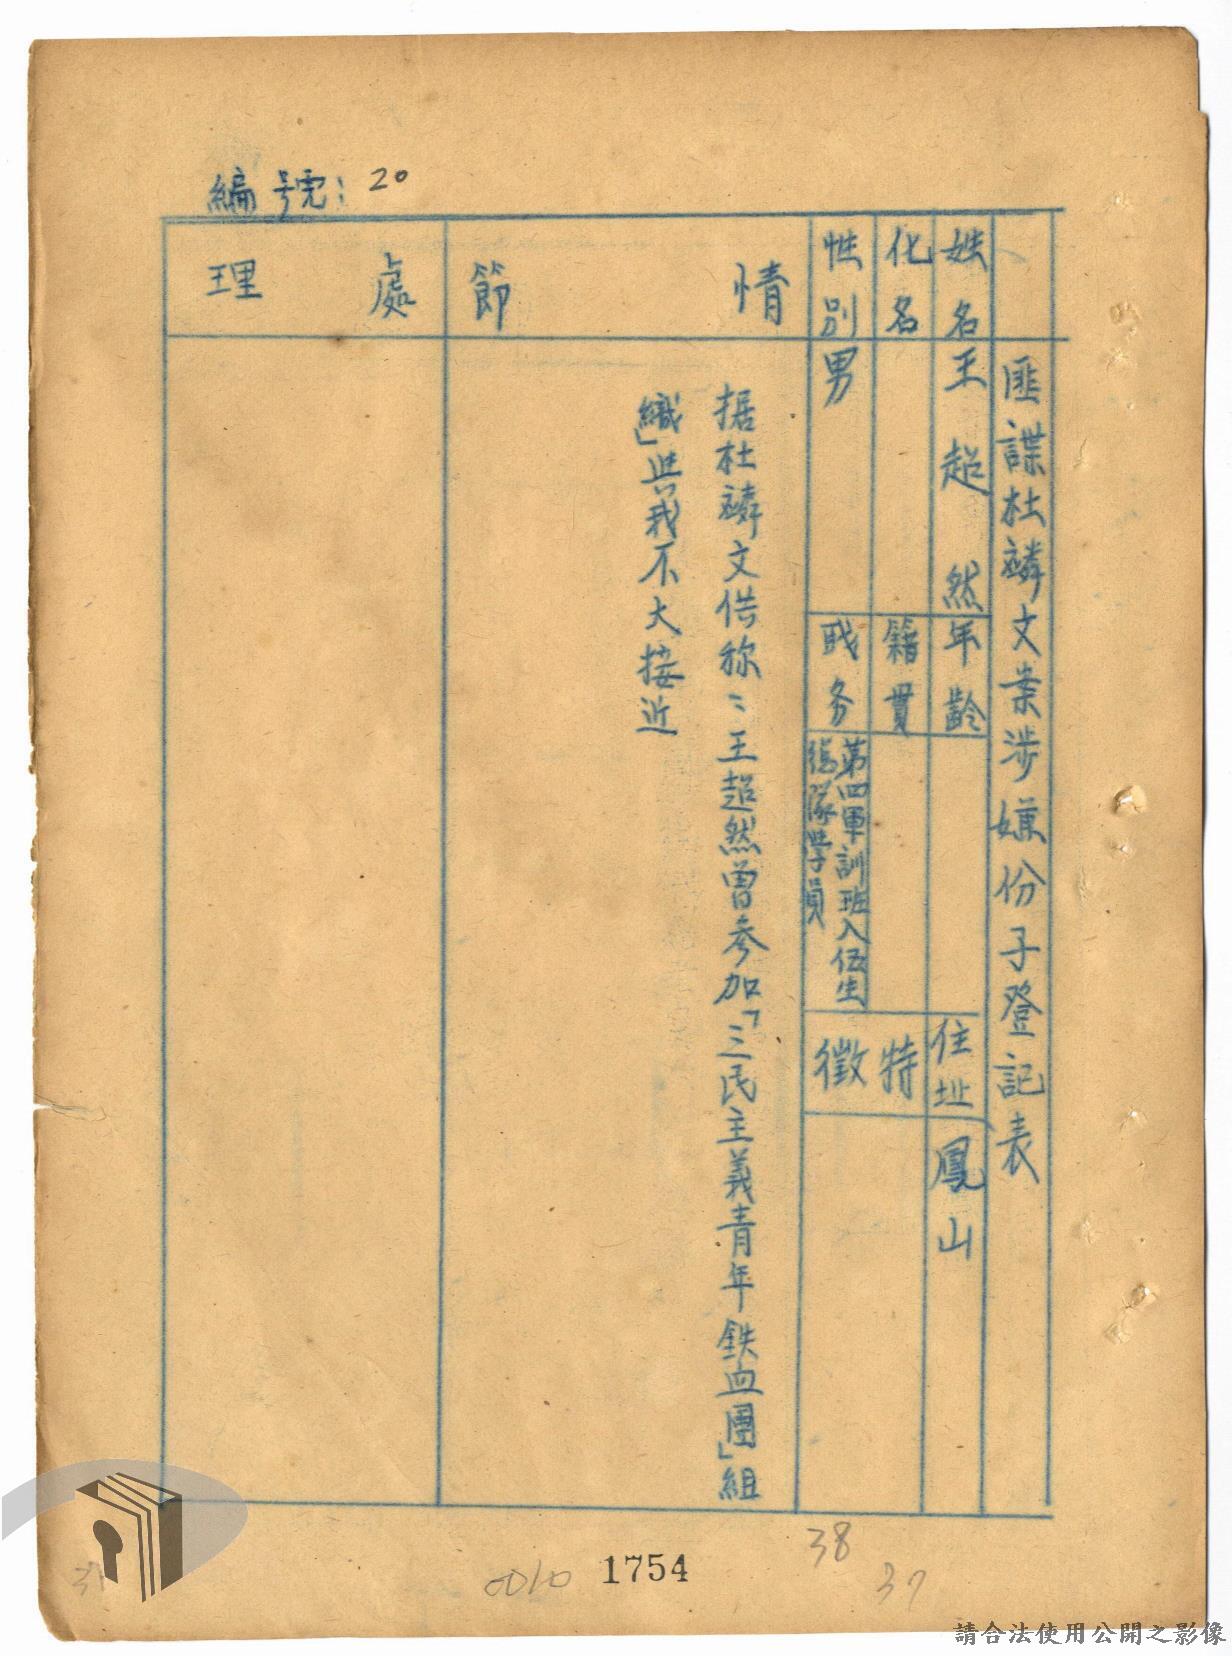 編號：20
匪諜杜麟文案涉嫌份子登記表
姓名
王超然
年齡
住址
鳳山
化名
籍貫
特徵
性別
男
职务
第四軍訓班入伍生
總隊學員
情節
据杜麟文供称：王超然曾參加「三民主義青年鉄血團」組
織」与我不大接近
處理
38
37
0010
1754
請合法使用公開之影像